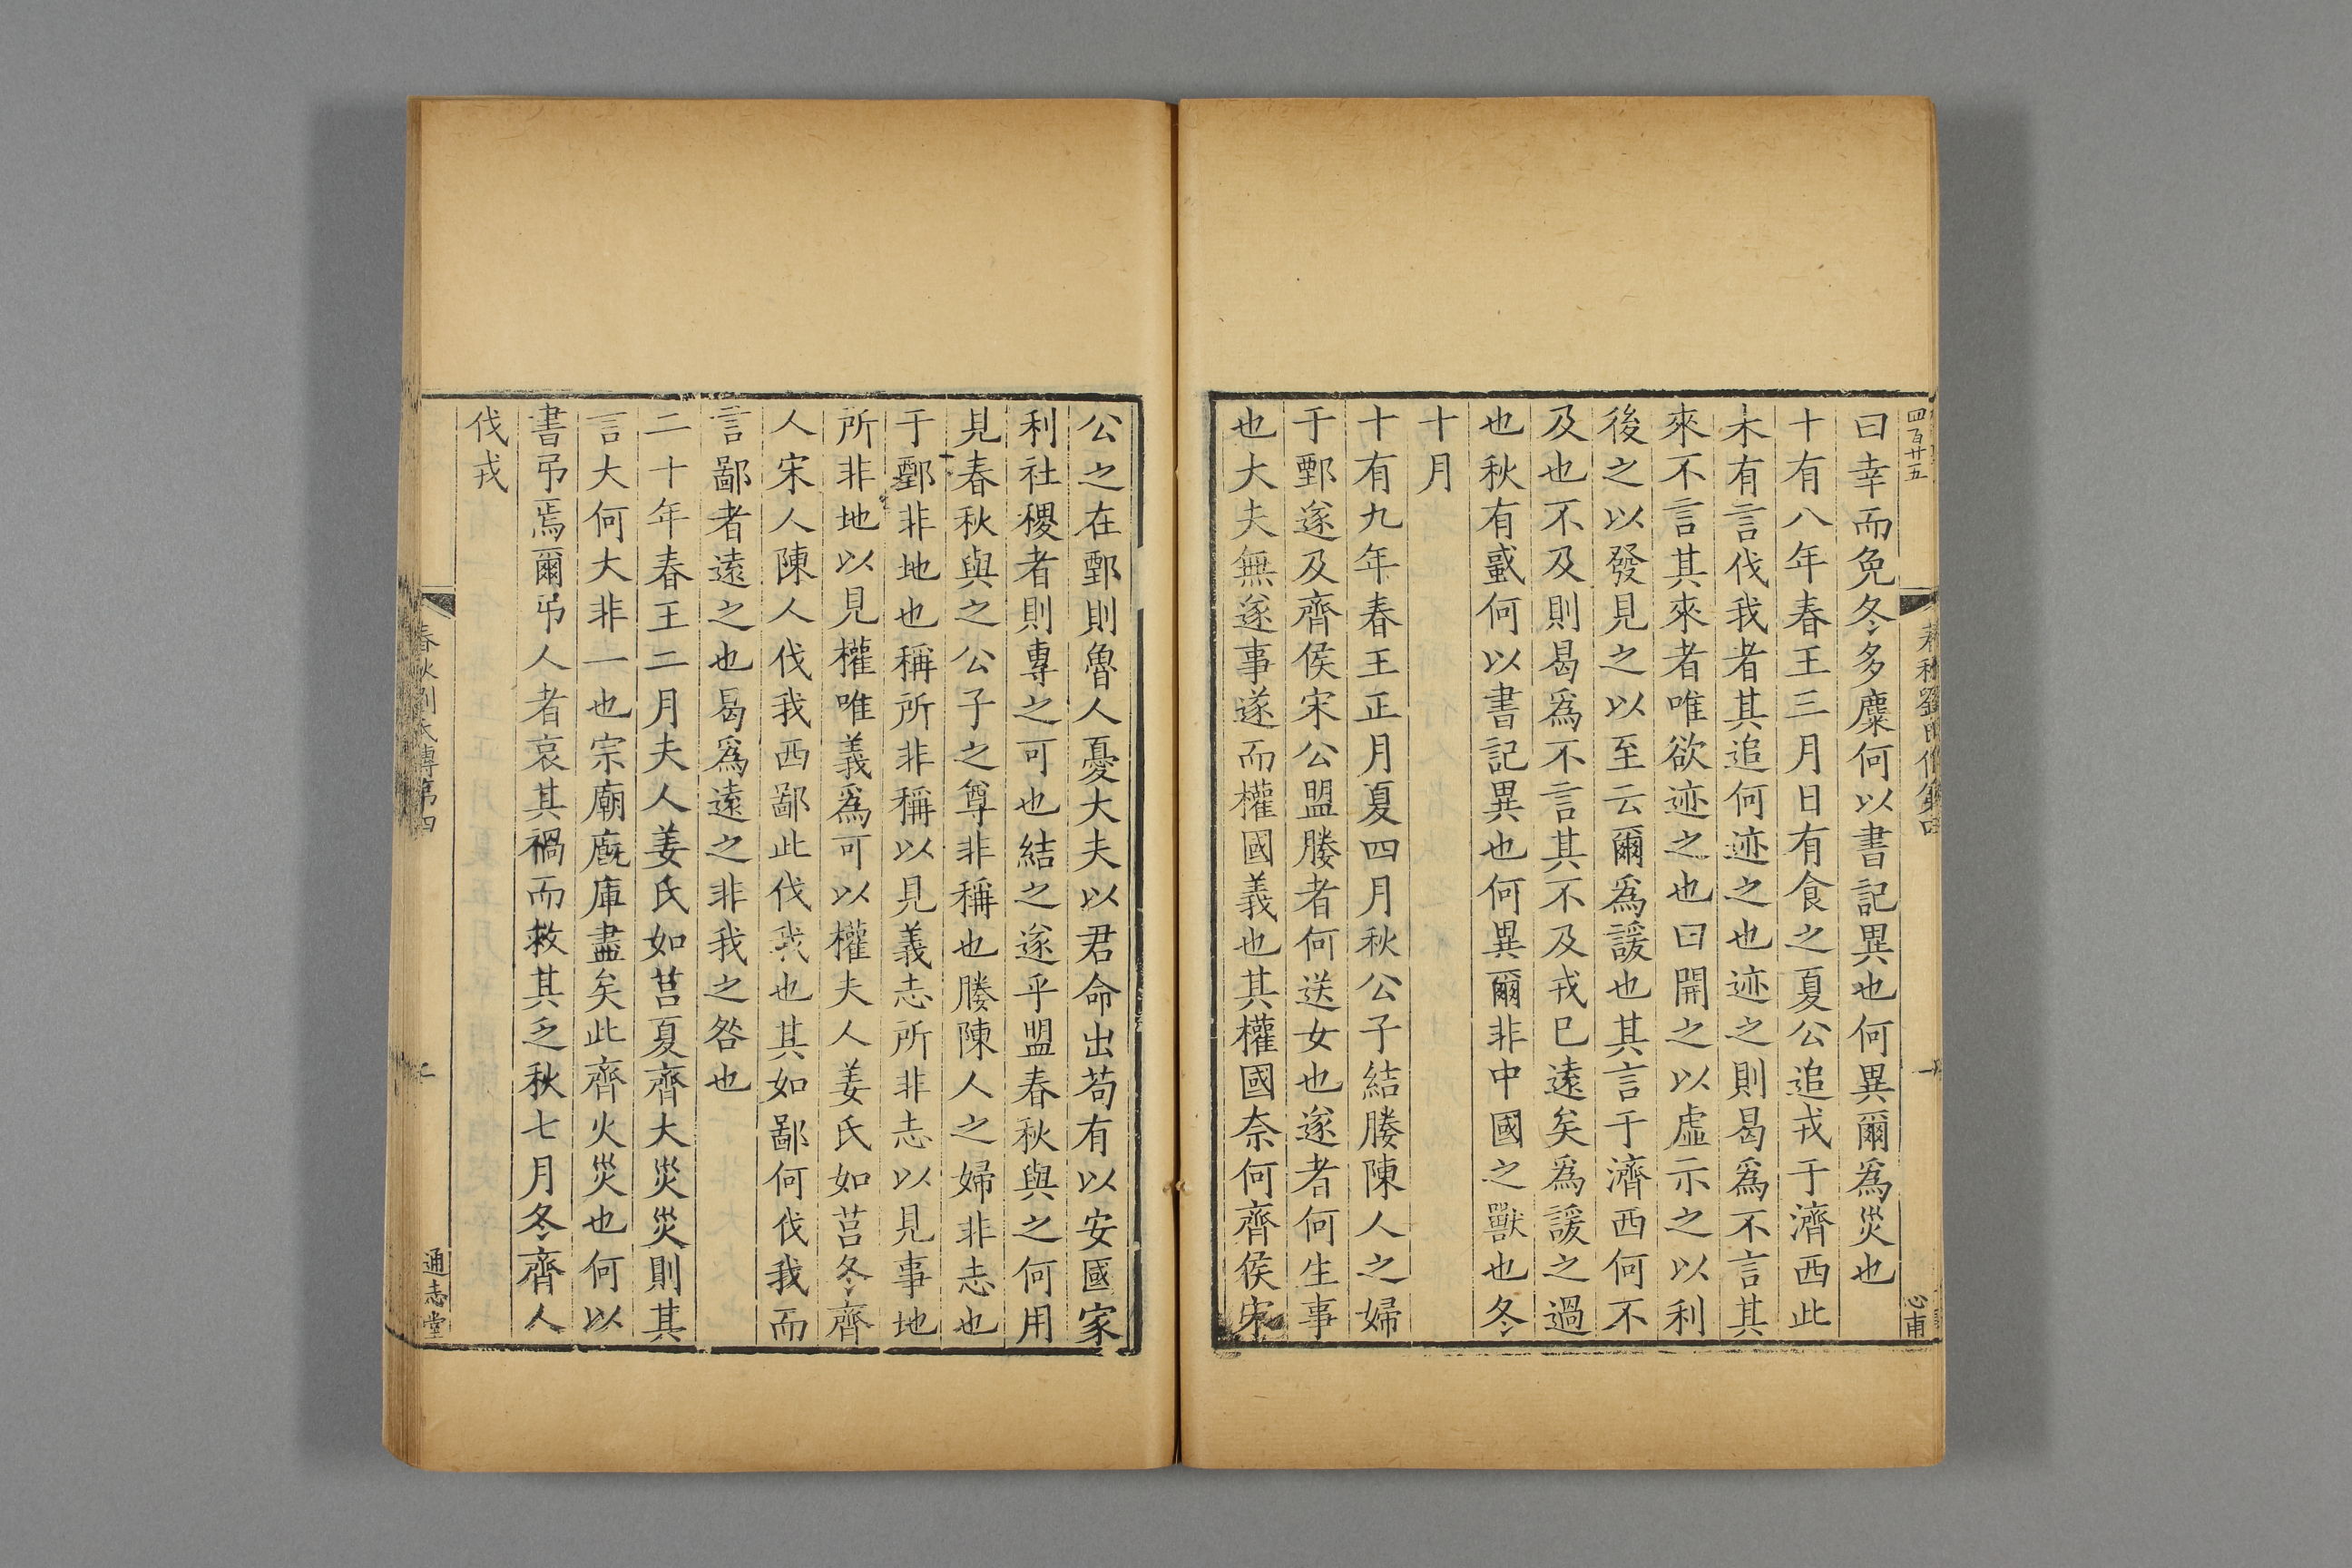 四百廿五
春秋劉氏傳第四
心甫
曰幸而免冬多麋何以書記異也何異爾爲災也
十有八年春王三月日有食之夏公追戎于濟西此
未有言伐我者其追何迹之也迹之則曷爲不言其
來不言其來者唯欲迹之也曰開之以虛示之以利
後之以發見之以至云爾爲諼也其言于濟西何不
及也不及則曷爲不言其不及戎已遠矣爲諼之過
也秋有蜮何以書記異也何異爾非中國之獸也冬
十月
十有九年春王正月夏四月秋公子結媵陳人之婦
于鄄遂及齊侯宋公盟媵者何送女也遂者何生事
也大夫無遂事遂而權國義也其權國奈何齊侯宋
公之在鄄則魯人憂大夫以君命出苟有以安國家
利社稷者則專之可也結之遂乎盟春秋與之何用
見春秋與之公子之尊非稱也媵陳人之婦非志也
于鄄非地也稱所非稱以見義志所非志以見事地
所非地以見權唯義爲可以權夫人姜氏如莒冬齊
人宋人陳人伐我西鄙此伐我也其如鄙何伐我而
言鄙者遠之也曷爲遠之非我之咎也
二十年春王二月夫人姜氏如莒夏齊大災災則其
言大何大非一也宗廟廐庫盡矣此齊火災也何以
書弔焉爾弔人者哀其禍而救其乏秋七月冬齊人
伐戎
春秋劉氏傳第四
通志堂